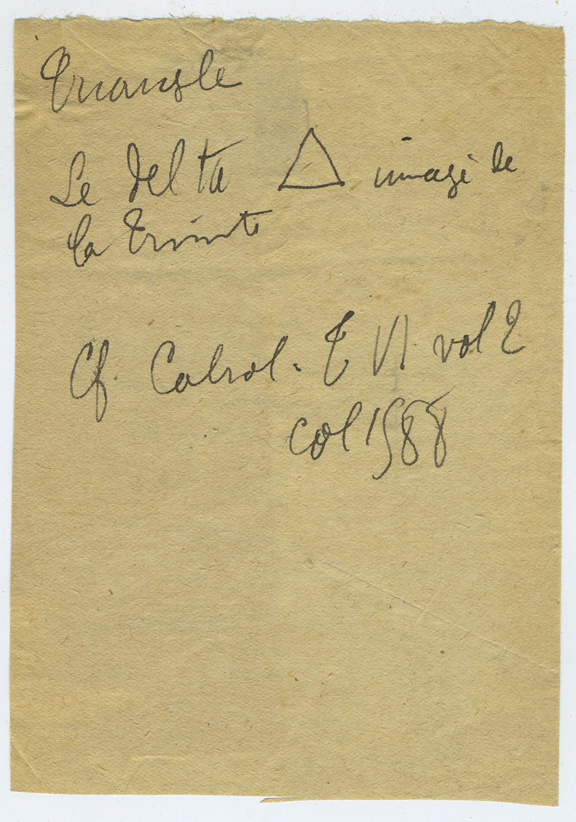 Triangle
Le delta △ image de
la Trinité
Cf. Cabrol. T VI vol 2
col 1588